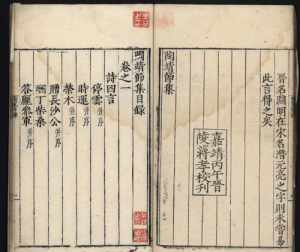 晉名淵明宋名潛元亮之字則未嘗易
此言得之矣
陶靖節集
嘉靖丙午晉
陵蔣孝校刊
陶靖節集目錄
卷之一
詩四言
停雲并序
時運并序
榮木并序
贈長沙公并序
酬丁柴桑
答龐參軍并序